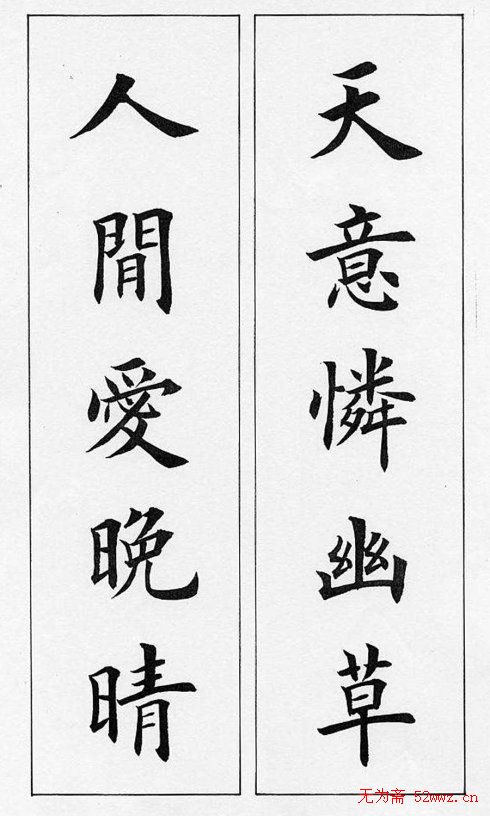 天意憐幽草
人間愛晚晴
无为斋 52wwz.cn